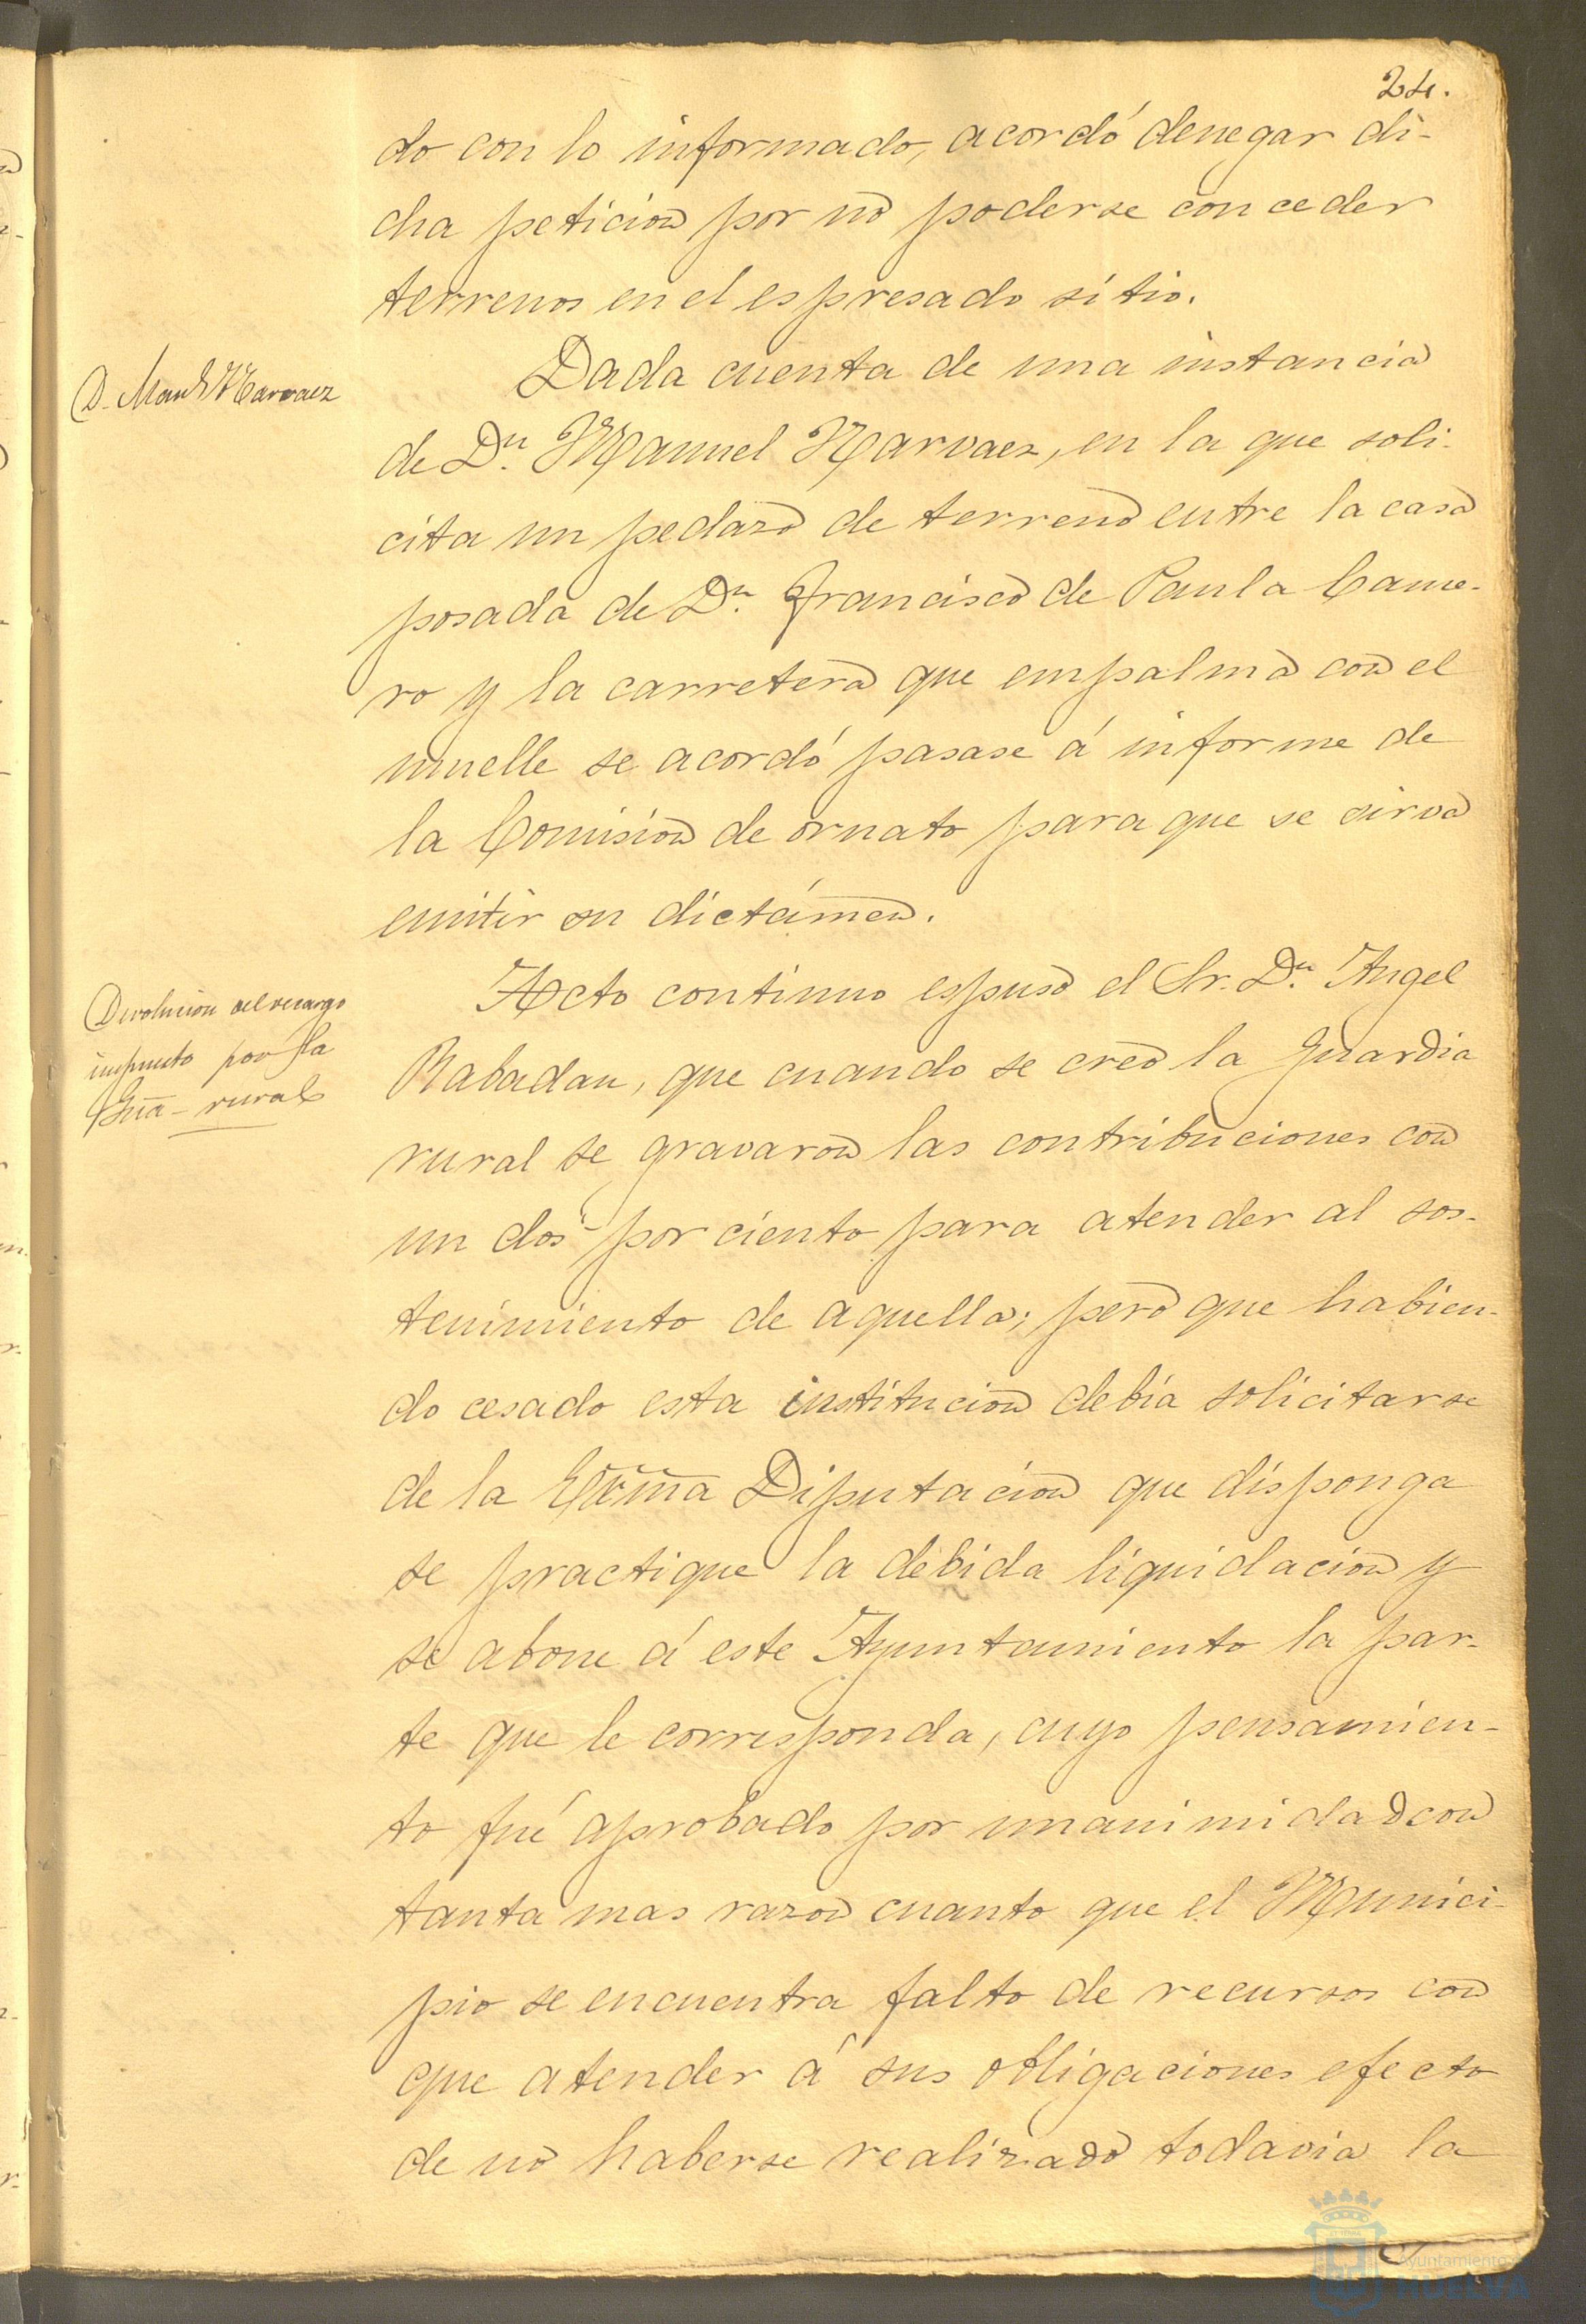 24.
do con lo informado, acordó denegar di-
cha peticion por no poderse conceder
terrenos en el espresado sitio.
D. Manl. Narvaez
Dada cuenta de una instancia
de Dn. Manuel Narvaez, en la que soli-
cita un pedazo de terreno entre la casa
posada de Dn. Francisco de Paula Came-
ro y la carretera que empalma con el
muelle se acordó pasase á informe de
la Comision de ornato para que se sirva
emitir su dictámen.
Devolucion del recargo
impuesto por la
Guía rural
Acto continuo espuso el Sr. Dn. Angel
Rabadan, que cuando se creó la guardia
rural se gravaron las contribuciones con
un dos por ciento para atender al sos-
tenimiento de aquella; pero que habien-
do cesado esta institucion debia solicitarse
de la Excma Diputacion que disponga
se practique la debida liquidacion y
se abone á este Ayuntamiento la par-
te que le corresponda, cuyo pensamien-
to fué aprobado por unanimidad con
tanta mas razon cuanto que el Munici-
pio se encuentra falto de recursos con
que atender á sus obligaciones efecto
de no haberse realizado todavia la
Ayuntamiento
HUELVA